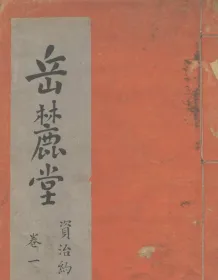 岳麓堂
資治約
卷一